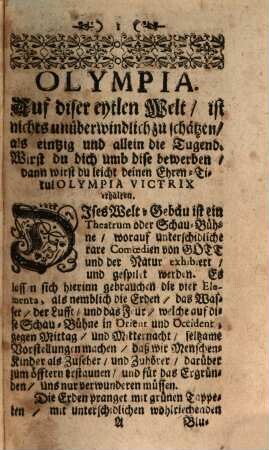 1
OLYMPIA.
Auf diser eytlen Welt / ist
nichts unüberwindlich zu schätzen /
als eintzig und allein die Tugend.
Wirst du dich umb dise bewerben /
dann wirst du leicht deinen Ehren-Ti-
tul OLYMPIA VICTRIX
erhalten.
DIses Welt-Gebäu ist ein
Theatrum oder Schau-Büh-
ne / worauf unterschidliche
rare Comœdien von GOTT
und der Natur exhibiert /
und gespilet werden. Es
lassen sich hierinn gebrauchen die vier Ele-
menta, als nemblich die Erden / das Was-
ser / der Lufft / und das Feur / welche auf di-
se Schau-Bühne in Orient und Occident,
gegen Mittag / und Mitternacht / seltzame
Vorstellungen machen / daß wir Menschen-
Kinder als Zuseher / und Zuhörer / darüber
zum öfftern erstaunen / und für das Ergrün-
den / uns nur verwunderen müssen.
Die Erden pranget mit grünen Tappe-
ten / mit unterschidlichen wohlriechenden
A Blu-